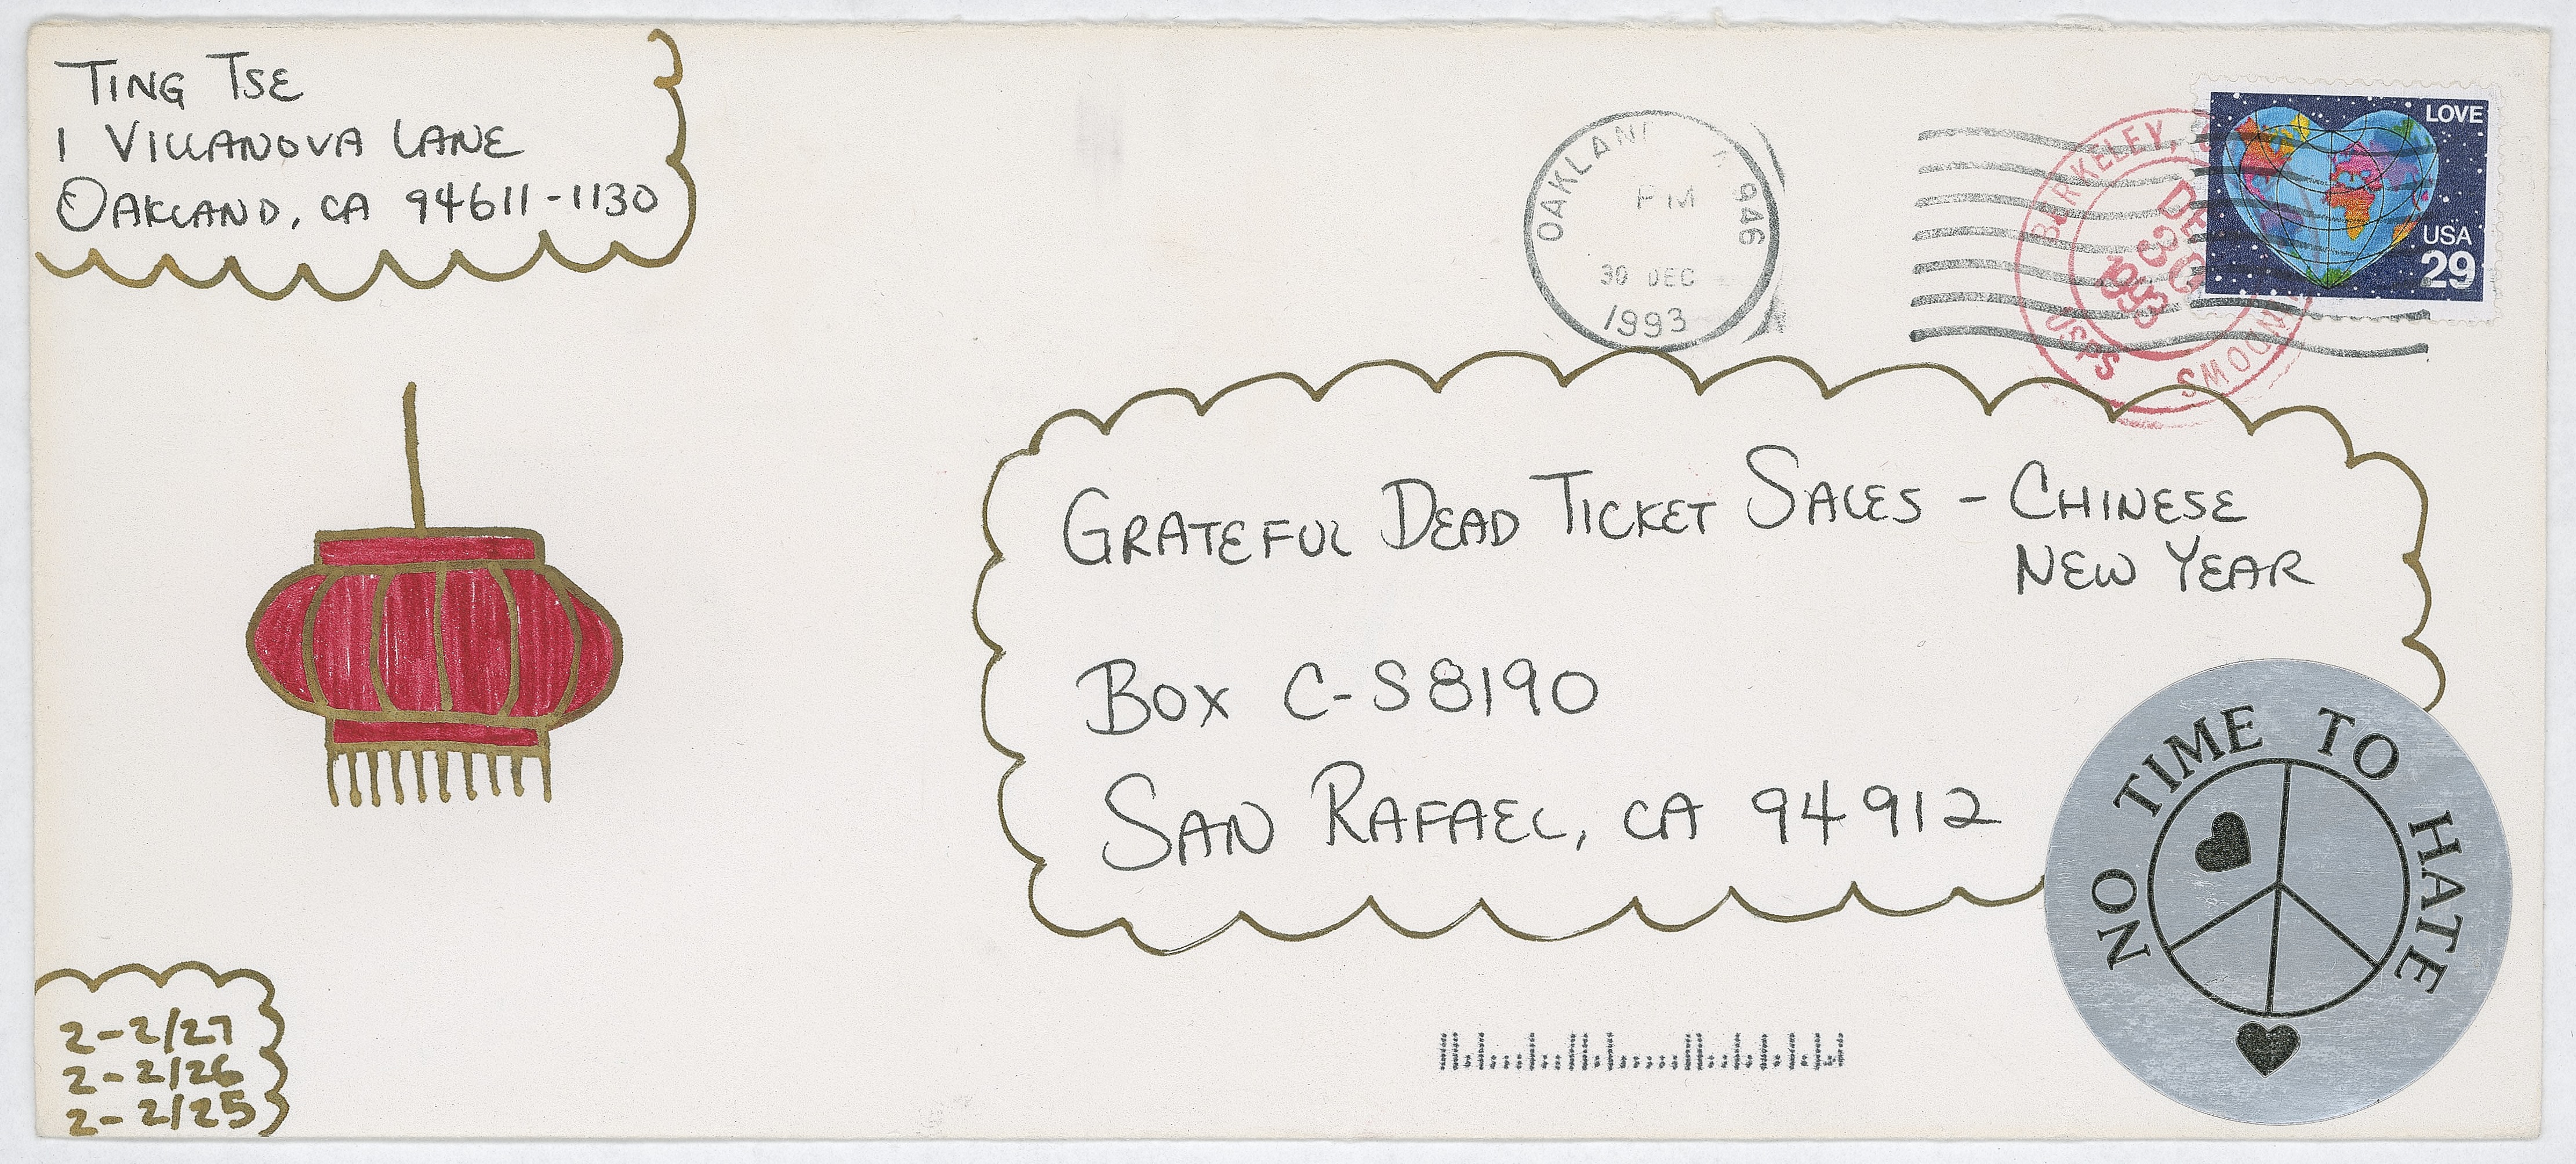 TING TSE
1 VILLANOVA LANE
OAKLAND, CA 94611-1130
OAKLAN
946
PM
30 DEC
1993
BERKELEY,
DEC
30
1993
USPS
LOVE
USA
29
GRATEFUL DEAD TICKET SALES - CHINESE
NEW YEAR
BOX C-S8190
SAN RAFAEL, CA 94912
NO TIME TO HATE
2-2/27
2-2/26
2-2/25